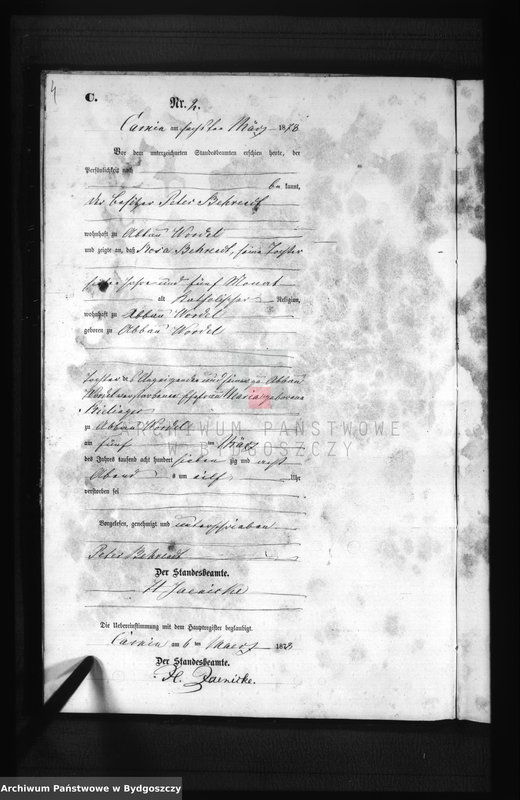 4
C.
Nr. 2.
Camin am sechsten März 1878
Vor dem unterzeichneten Standesbeamten erschien heute, der
Persönlichkeit nach
be kannt,
der Besitzer Peter Behrendt
wohnhaft zu Abbau Wordel
und zeigte an, daß Rosa Behrendt, seine Tochter
sieben Jahre und fünf Monat
alt Katholischer Religion,
wohnhaft zu Abbau Wordel
geboren zu Abbau Wordel
Tochter des Anzeigenden und seiner zu Abbau
Wordel verstorbenen Ehefrau Maria geborene
zu Abbau Wordel
am fünf ten März
des Jahres tausend acht hundert sieben zig und acht
Abend s um eilf Uhr
verstorben sei
Vorgelesen, genehmigt und unterschrieben
Peter Behrendt
Der Standesbeamte.
H Jaenicke
Die Uebereinstimmung mit dem Hauptregister beglaubigt.
Camin am 6 ten Maerz 1878
Der Standesbeamte.
H. Jaenicke.
ARCHIWUM PAŃSTWOWE
W BYDGOSZCZY
Archiwum Państwowe w Bydgoszczy